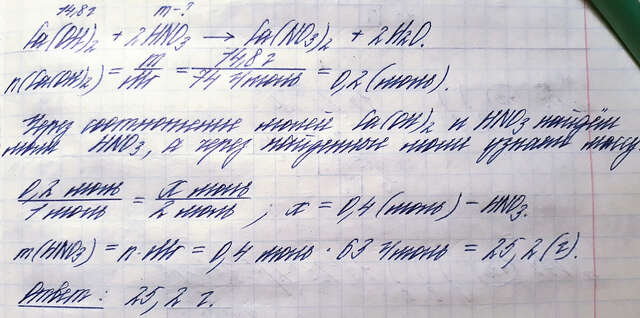 14,8 г m-?
Ca(OH)₂ + 2HNO₃ → Ca(NO₃)₂ + 2H₂O.
n(Ca(OH)₂) = m/Mr = 14,8 г/74 г/моль = 0,2 (моль).
Через соотношение молей Ca(OH)₂ и HNO₃ найдём
моли HNO₃, а через найденные моли узнаем массу
0,2 моль/1 моль = x моль/2 моль ; x = 0,4 (моль) - HNO₃.
m(HNO₃) = n·Mr = 0,4 моль · 63 г/моль = 25,2 (г).
Ответ: 25,2 г.